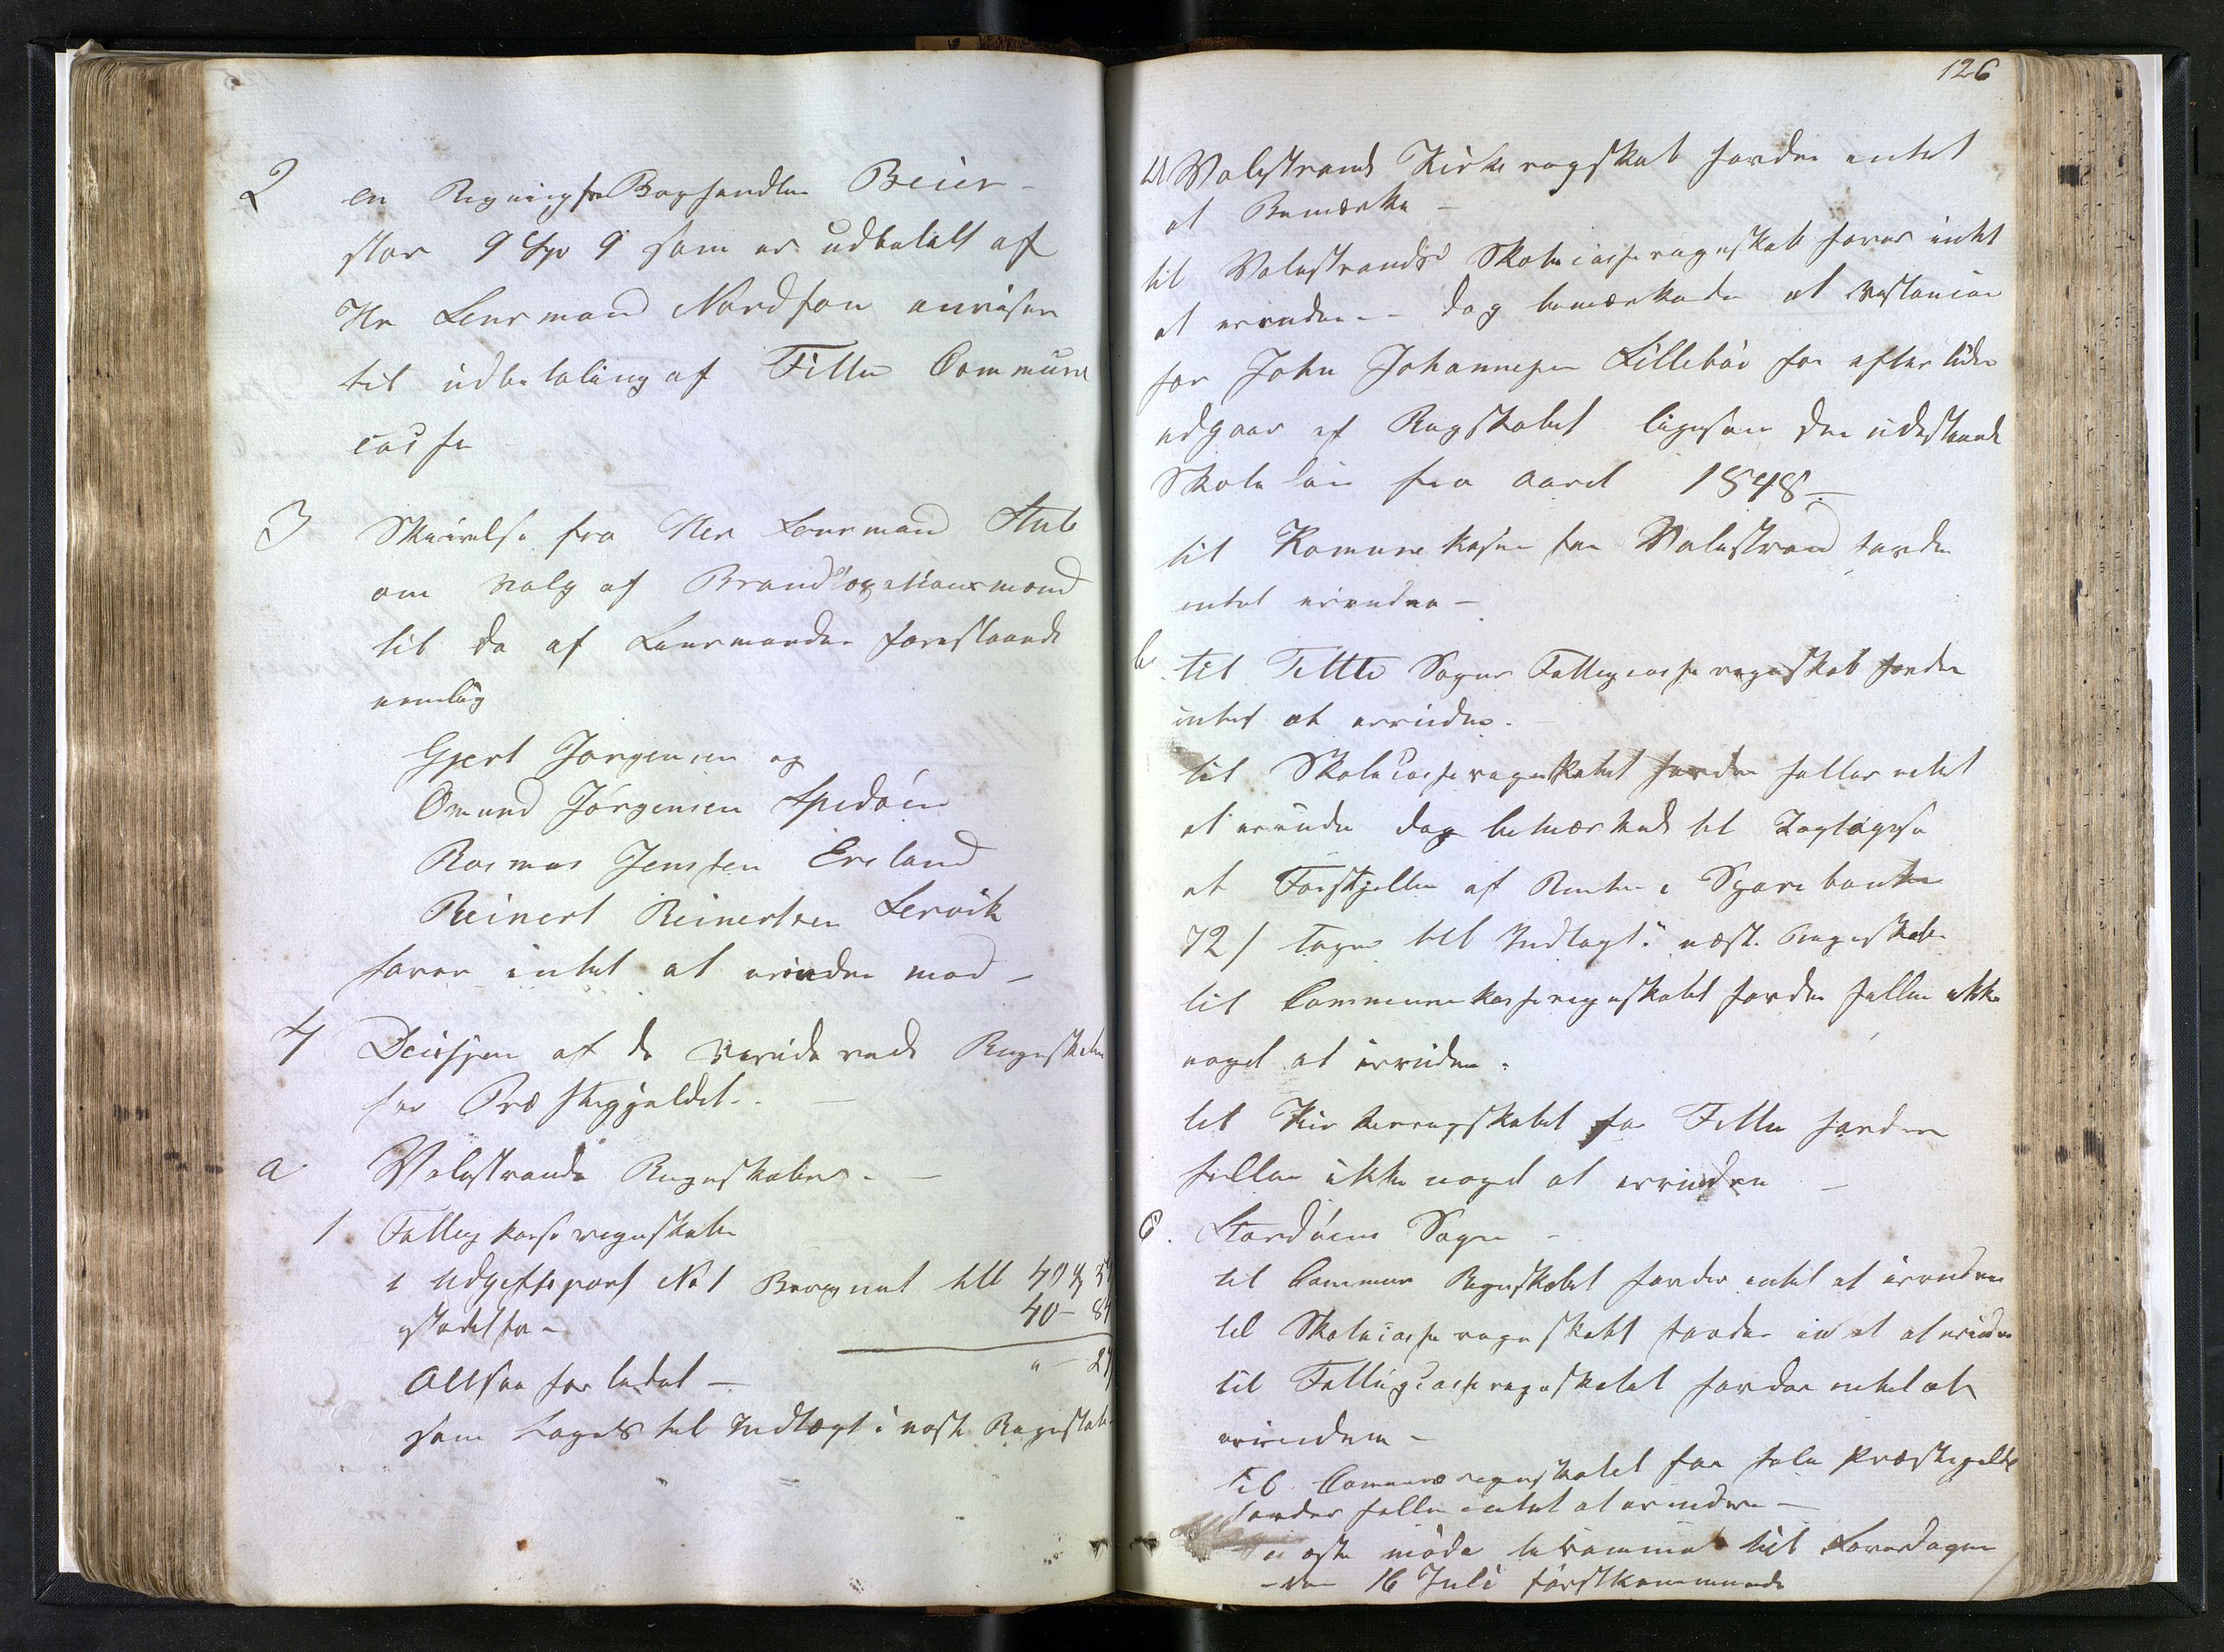 2 en Regning fra Boghandler Beier
stor 9 Spd 9 som er udbetalt af
Hr Lensmand Nordson anvises
til udbetaling af Fitie Commune
casse
3 Skrivelse fra Her Lensmand Stub
om valg af Brandtaxationsmænd
til de af Lensmanden foreslaaede
nemlig
Gjert Jørgensen og
Omund Jørgensen Spidøen
Rasmus Jenssen Eveland
Reinert Reinertsen Lervik
haves intet at erindre mod -
4 Decisjon af de reviderede Regnskaber
for Præstegjældet. -
a Valestrands Regnskaber. -
1 Fattigkasseregnskabet
i Udgiftspost No 1 Beregnet til
istedetfor -
40 - 84
Altsaa for ladet -
som tages til Indtægt i næste Regnskab
126
Til Valestrands Kirkeregnskab havdes intet
at Bemærke -
til Valestrands Skolecasseregnskab haves intet
at erindre - dog bemærkedes at restancen
for John Johannesen Lillebøe for efter tiden
udgaar af Regnskabet ligesom den udestaaende
Skole løn fra Aaret 1848 -
til Komunekassen for Valestrand havdes
intet erindre -
b. til Fitie Sogns Fattigcasseregnskab havdes
intet at erindre. -
til Skolecasseregnskabet havdes heller intet
at erindre dog bemærkes til Iagttagelse
at Forskjellen af Renter i Sparebanken
72 / tages til Indtægt i næste Regnskab
til Communekasseregnskabet havdes heller ikke
noget at erindre.
til Kirkeregnskabet for Fitie havdes
heller ikke noget at erindre -
c. Stordøens Sogn -
til Commune Regnskabet havdes intet at erindre
til Skolecasseregnskabet havdes intet at erindre
til Fattigcasseregnskabet havdes intet at
erindre -
til Communeregnskabet for hele Præstegjeldet
havdes heller intet at erindre -
næste møde berammet til Løverdagen
den 16 Juli førstkommende